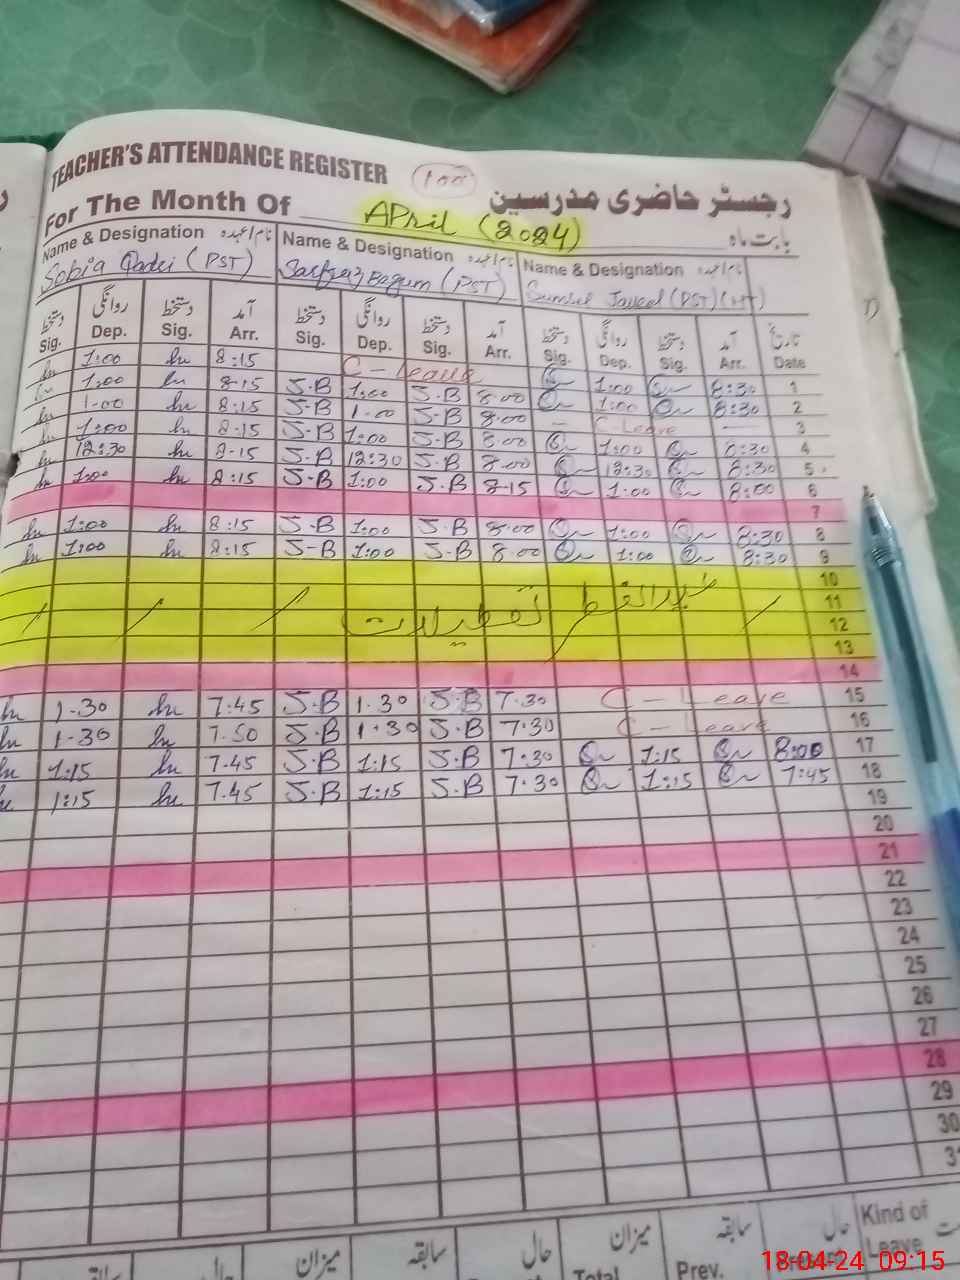 TEACHER'S ATTENDANCE REGISTER 100 رجسٹر حاضری مدرسین
For The Month Of APril (2024) بابت ماہ
Name & Designation نام/عہدہ Name & Designation نام/عہدہ Name & Designation نام/عہدہ
Sobia (PST) Begum (PST) Javed (PST) (HT)
دستخط روانگی دستخط آمد دستخط روانگی دستخط آمد دستخط روانگی دستخط آمد تاریخ
Sig. Dep. Sig. Arr. Sig. Dep. Sig. Arr. Sig. Dep. Sig. Arr. Date
1:00 8:15 C-Leave 1:00 8:30 1
1:00 8-15 S.B 1:00 S.B 8.00 1:00 8:30 2
1-00 8:15 S-B 1-00 S-B 8.00 - C-Leave - 3
1:00 8-15 S-B 1:00 S-B 8.00 1:00 8:30 4
12:30 8-15 S-B 12:30 S-B 8.00 12:30 8:30 5
1:00 8:15 S-B 1:00 S.B 8-15 1:00 8:00 6
7
1:00 8:15 S-B 1:00 S.B 8.00 1:00 8:30 8
1:00 8:15 S-B 1:00 S-B 8.00 1:00 8:30 9
10
عید الفطر تعطیلات 11
12
13
14
1-30 7:45 S.B 1.30 S.B 7.30 C-Leave 15
1-30 7.50 S.B 1.30 S.B 7.30 C-Leave 16
1:15 7.45 S.B 1:15 S.B 7:30 1:15 8:00 17
1:15 7.45 S.B 1:15 S.B 7.30 1:15 7:45 18
19
20
21
22
23
24
25
26
27
28
29
30
31
میزان سابقہ حال میزان سابقہ حال Kind of
Total Prev. Present Leave
18-04-24 09:15